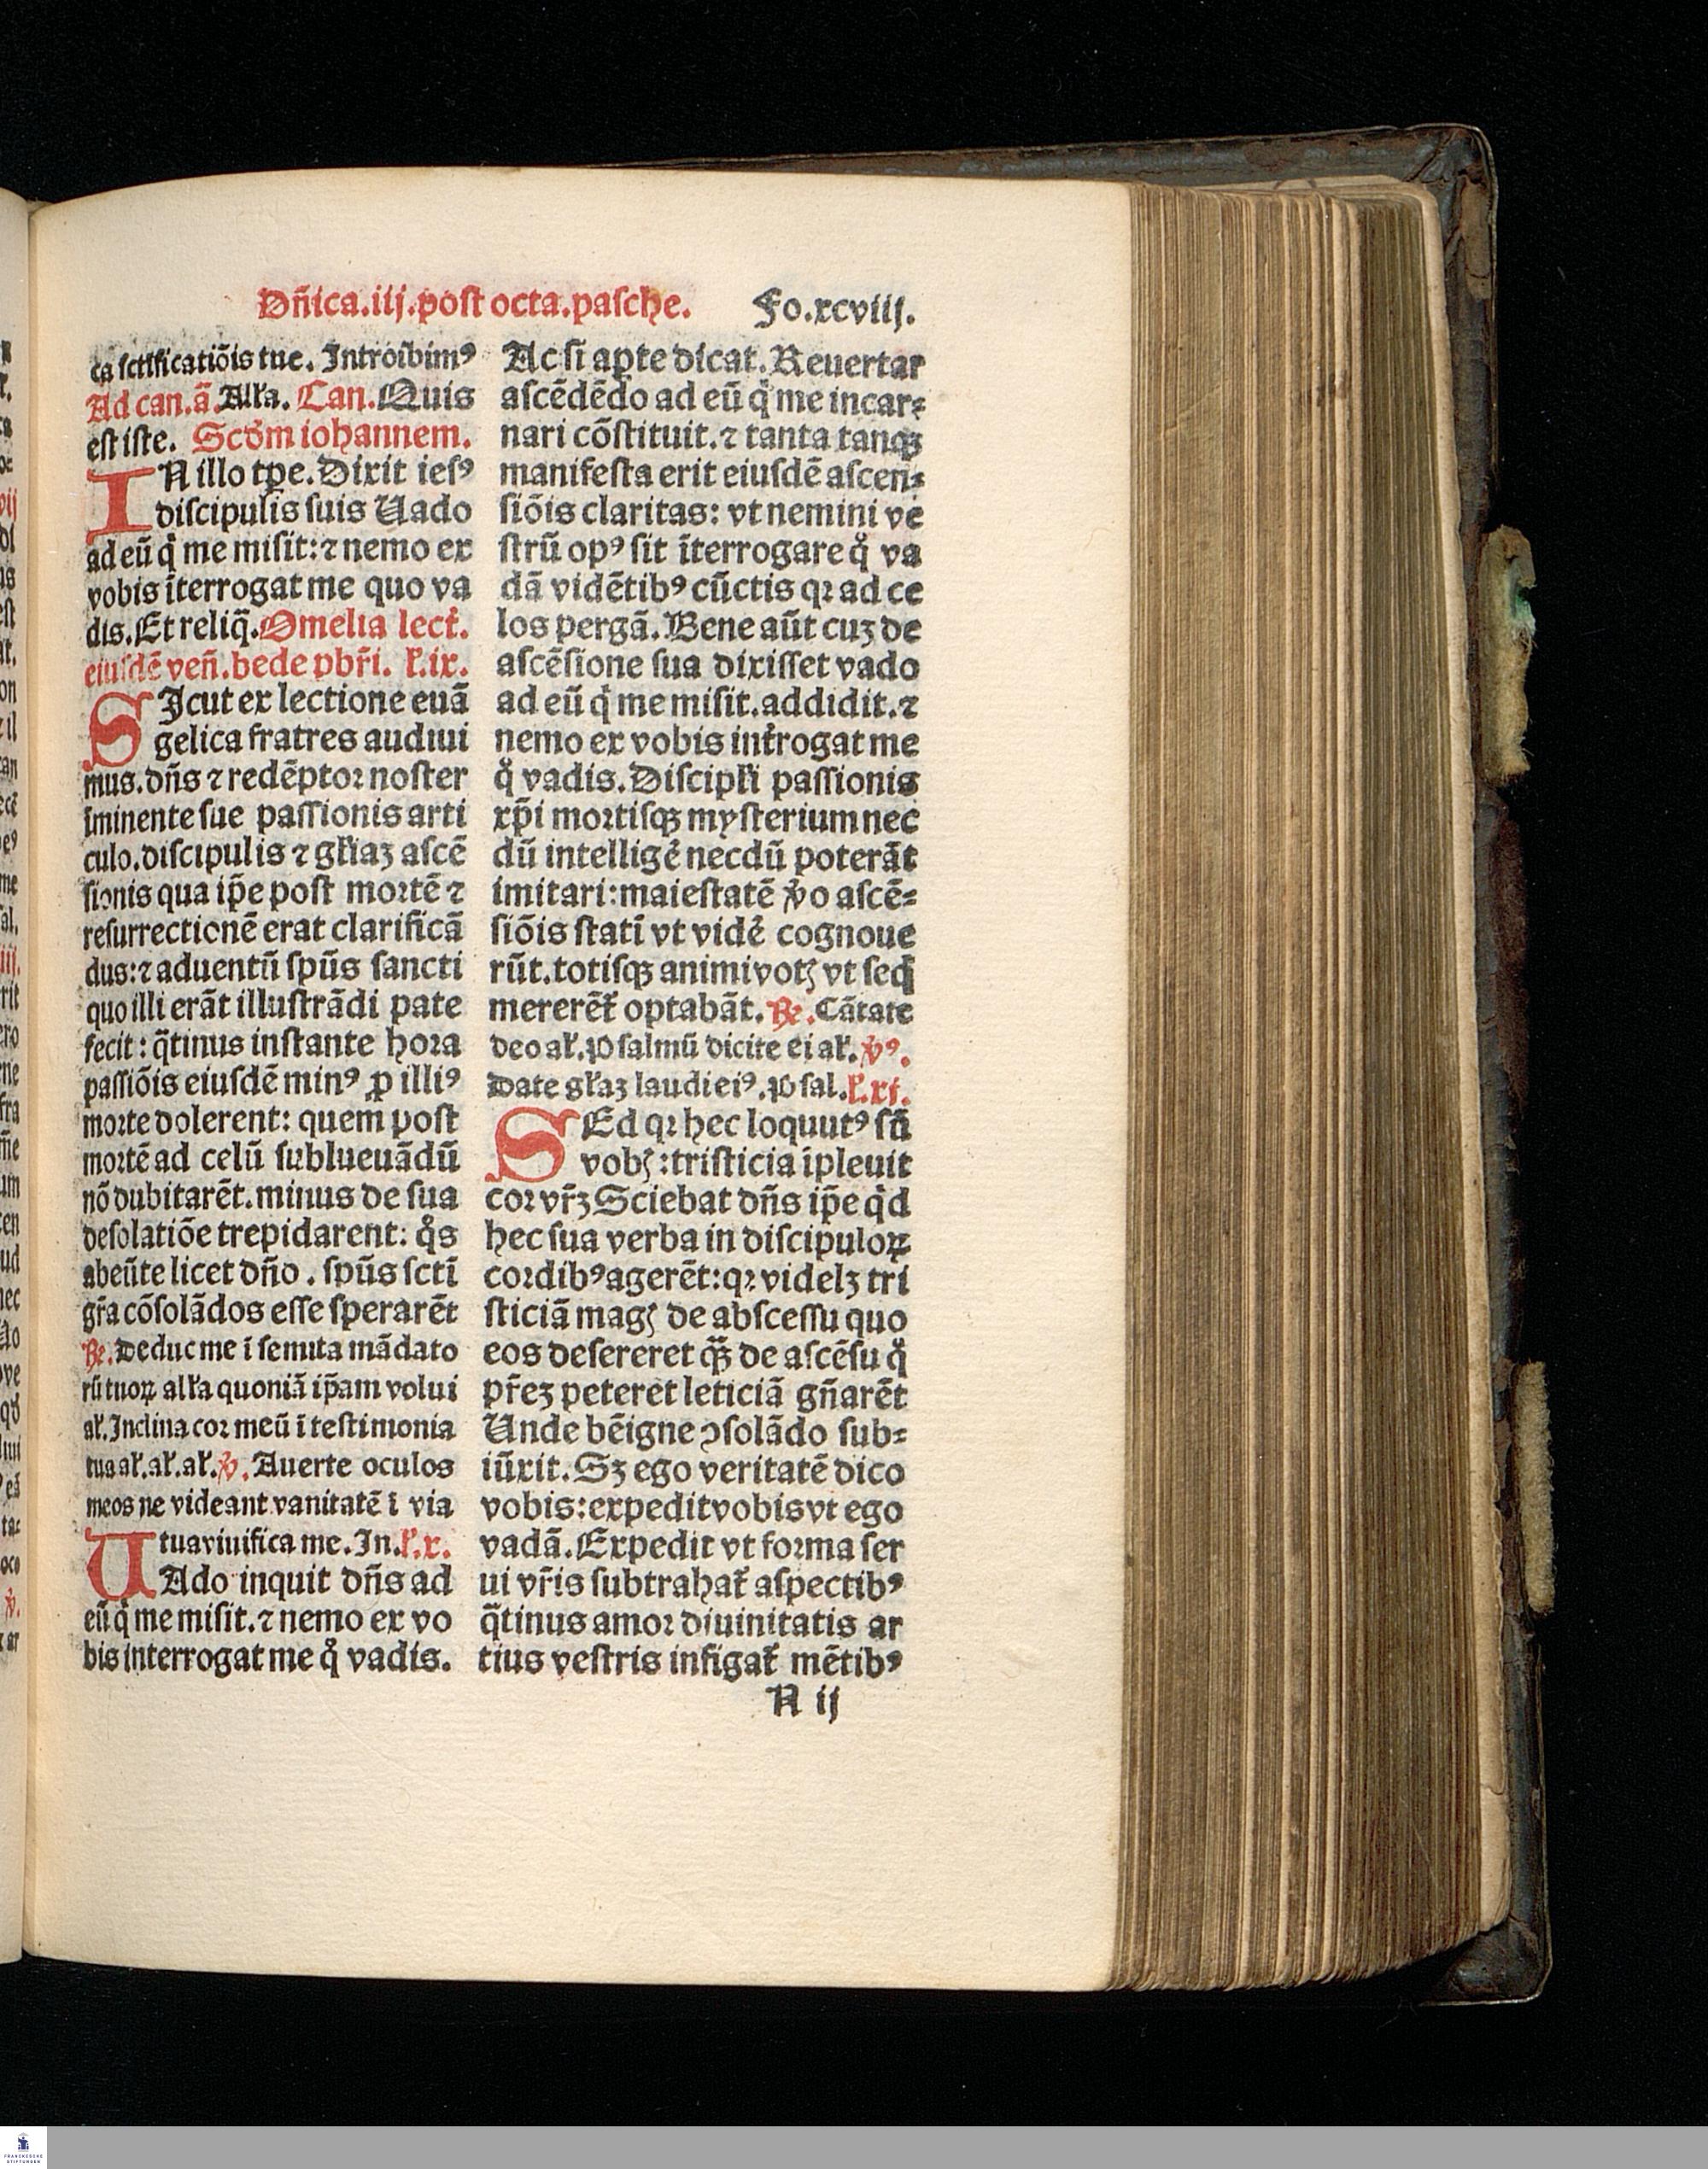 Dñica.iij.post octa.pasche. Fo.xcviij.
ca sctificatiõis tue. Introibimꝰ
Ad can.ã. Alľa. Can. Quis
est iste. Scḋm iohannem.
IN illo tꝑe. Dixit iesꝰ
discipulis suis Uado
ad eũ q̇ me misit: ⁊ nemo ex
vobis ĩterrogat me quo va
dis. Et reliq̃. Omelia lect̃.
eiusdẽ veñ. bede pbr̃i. ľ.ix.
SIcut ex lectione euã
gelica fratres audiui
mus. dñs ⁊ redẽptor noster
ĩminente sue passionis arti
culo. discipulis ⁊ gľiaꝫ ascẽ
sionis qua ip̃e post mortẽ ⁊
resurrectionẽ erat clarificã
dus: ⁊ aduentũ spũs sancti
quo illi erãt illustrãdi pate
fecit: q̃tinus instante hora
passiõis eiusdẽ minꝰ ꝓ illiꝰ
morte dolerent: quem post
mortẽ ad celũ sublueuãdũ
nõ dubitarẽt. minus de sua
desolatiõe trepidarent: q̊s
abeũte licet dño. spũs sctĩ
gr̃a cõsolãdos esse sperarẽt
℞. Deduc me ĩ semita mãdato
rũ tuoꝝ alľa quoniã ip̃am volui
aľ. Inclina cor meũ ĩ testimonia
tua aľ. aľ. aľ. ℣. Auerte oculos
meos ne videant vanitatẽ ĩ via
tua viuifica me. In. ľ.x.
UAdo inquit dñs ad
eũ q̇ me misit. ⁊ nemo ex vo
bis interrogat me q̊ vadis.
Ac si apte dicat. Reuertar
ascẽdẽdo ad eũ q̇ me incar⸗
nari cõstituit. ⁊ tanta tanqꝫ
manifesta erit eiusdẽ ascen⸗
siõis claritas: vt nemini ve
strũ opꝰ sit ĩterrogare q̊ va
dã vidẽtibꝰ cũctis qꝛ ad ce
los pergã. Bene aũt cuꝫ de
ascẽsione sua dixisset vado
ad eũ q̇ me misit. addidit. ⁊
nemo ex vobis int̃rogat me
q̊ vadis. Discipľi passionis
xp̃i mortisqꝫ mysterium nec
dũ intelligẽ necdũ poterãt
imitari: maiestatẽ ṽo ascẽ⸗
siõis statĩ vt vidẽ cognoue
rũt. totisqꝫ animi votꝭ vt seq̃
mererẽt̃ optabãt. ℞. Cãtate
deo aľ. Psalmũ dicite ei aľ. ℣ꝰ.
Date gľaꝫ laudi eiꝰ. Psal. ľ.xi.
SEd qꝛ hec loquutꝰ sũ
vobꝭ: tristicia ĩpleuit
cor vr̃ꝫ Sciebat dñs ip̃e q̇d
hec sua verba in discipuloꝝ
cordibꝰ agerẽt: qꝛ videlꝫ tri
sticiã magꝭ de abscessu quo
eos desereret q̃ꝫ de ascẽsu q̊
pr̃eꝫ peteret leticiã gñarẽt
Unde bẽigne ↄsolãdo sub⸗
iũxit. Sꝫ ego veritatẽ dico
vobis: expedit vobis vt ego
vadã. Expedit vt forma ser
ui vr̃is subtrahat̃ aspectibꝰ
q̃tinus amor diuinitatis ar
tius vestris infigat̃ mẽtibꝰ
N ij
FRANCKESCHE
STIFTUNGEN